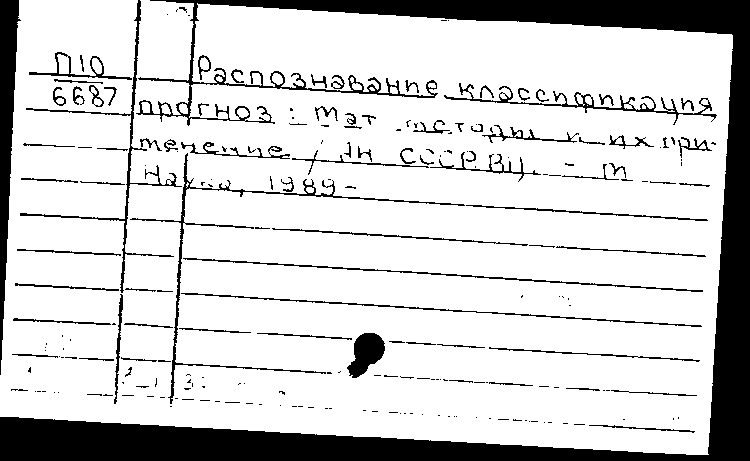 П10
6687
Распознавание, классификация,
прогноз: Мат. методы и их при-
менение / АН СССР, ВЦ. - М
Наука, 1989-